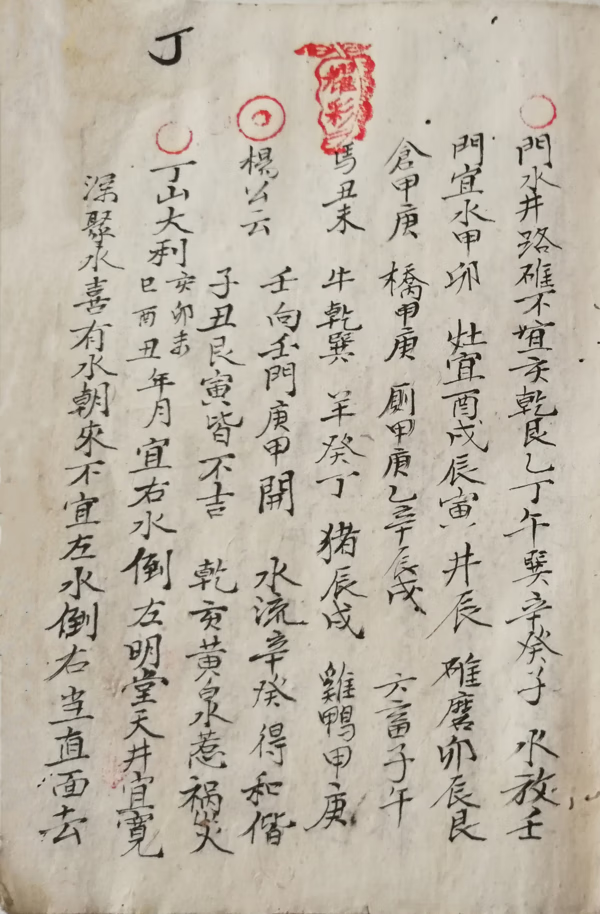 丁
耀彩
門水井路碓不宜亥乾艮乙丁午巽辛癸子 水放壬
門宜水甲卯 灶宜酉戌辰寅 井辰 碓磨卯辰艮
倉甲庚 橋甲庚 厠甲庚乙辛辰戌 六畜子午
馬丑未 牛乾巽 羊癸丁 猪辰戌 雞鴨甲庚
楊公云 壬向壬門庚甲開 水流辛癸得和偕
子丑艮寅皆不吉 乾亥黃泉水惹禍災
丁山大利亥卯未巳酉丑年月宜右水倒左明堂天井宜寬
深聚水喜有水朝來不宜左水倒右坐直面去